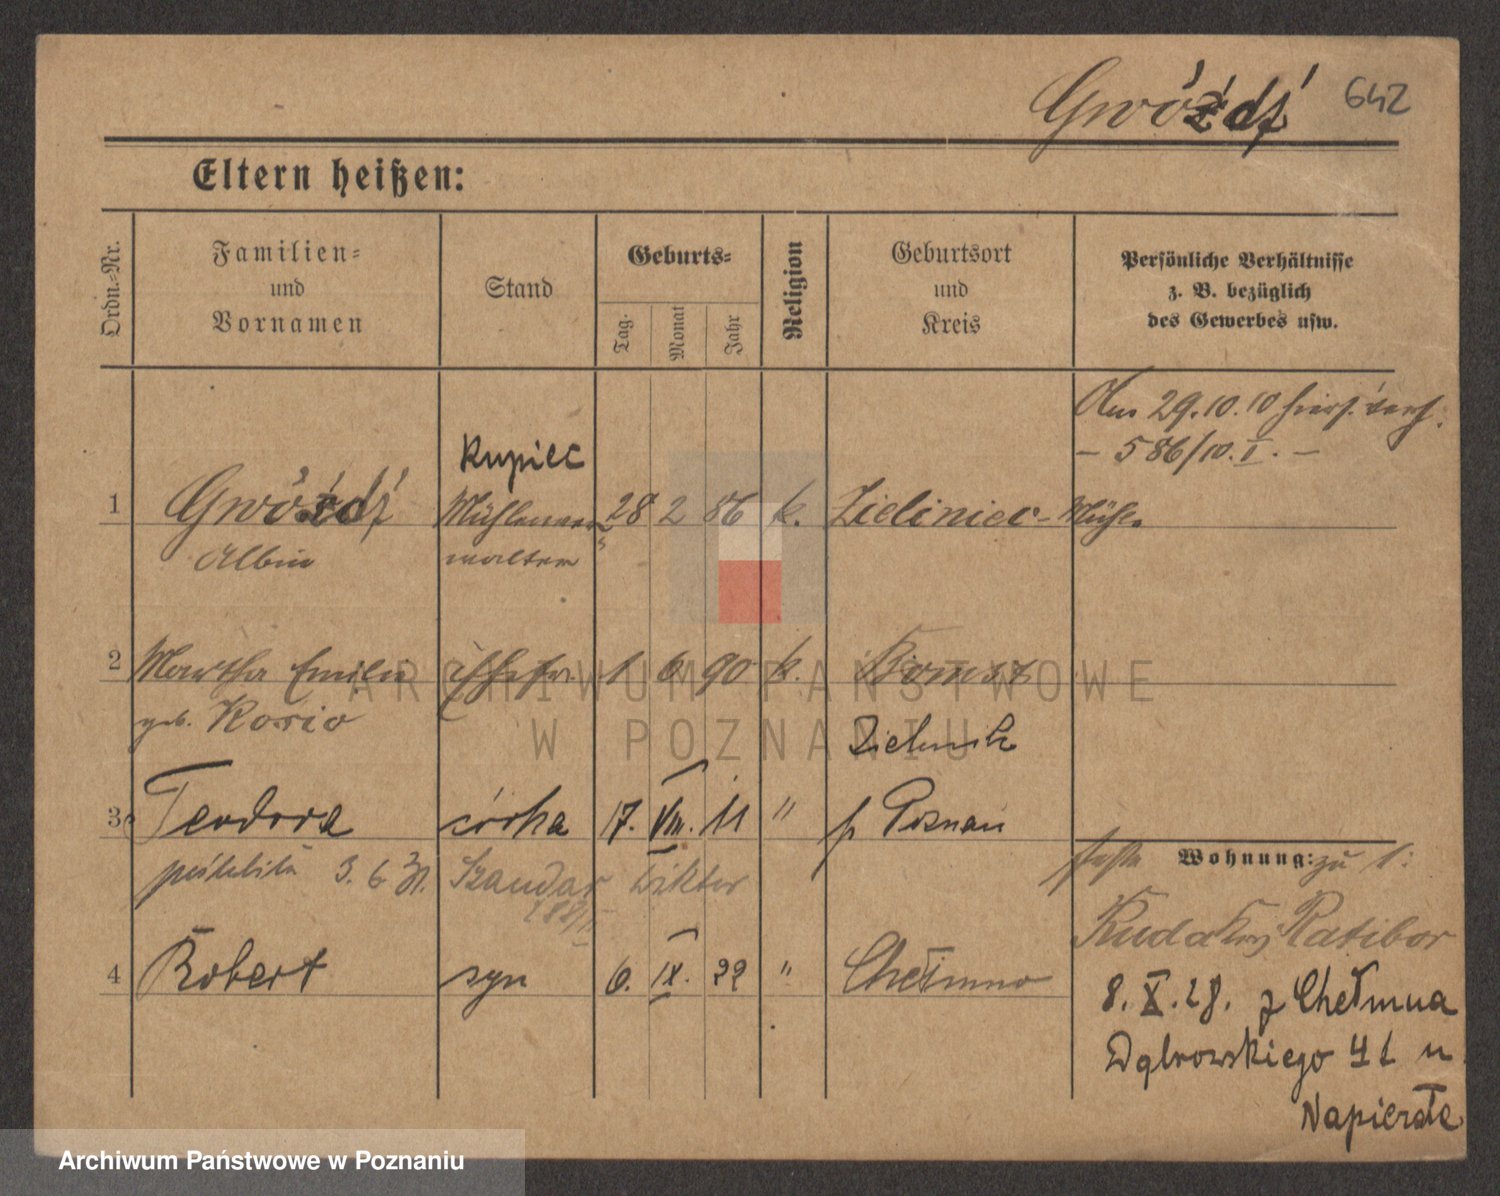 Gwóźdź 642
Eltern heißen:
Ordn.-Nr.
Familien-
und
Vornamen
Stand
Geburts-
Tag.
Monat
Jahr
Religion
Geburtsort
und
Kreis
Persönliche Verhältnisse
z. B. bezüglich
des Gewerbes usw.
29.10.10
– 586/10. I. –
Kupiec
1 Gwóźdź 28 2 86 k. Zieliniec
Albin
2 Martha Emilie Ehefr. 1 6 90 k. Bomst
geb. Kosio
3 Teodora córka 17. VIII. 11 " Poznań
3. 6. 31. Wiktor
Wohnung: zu 1:
Ratibor
4 Robert syn 6. IX. 22 " Chełmno
8. X. 28. z Chełmna
Dąbrowskiego 41 u
Napierała
ARCHIWUM PAŃSTWOWE
W POZNANIU
Archiwum Państwowe w Poznaniu